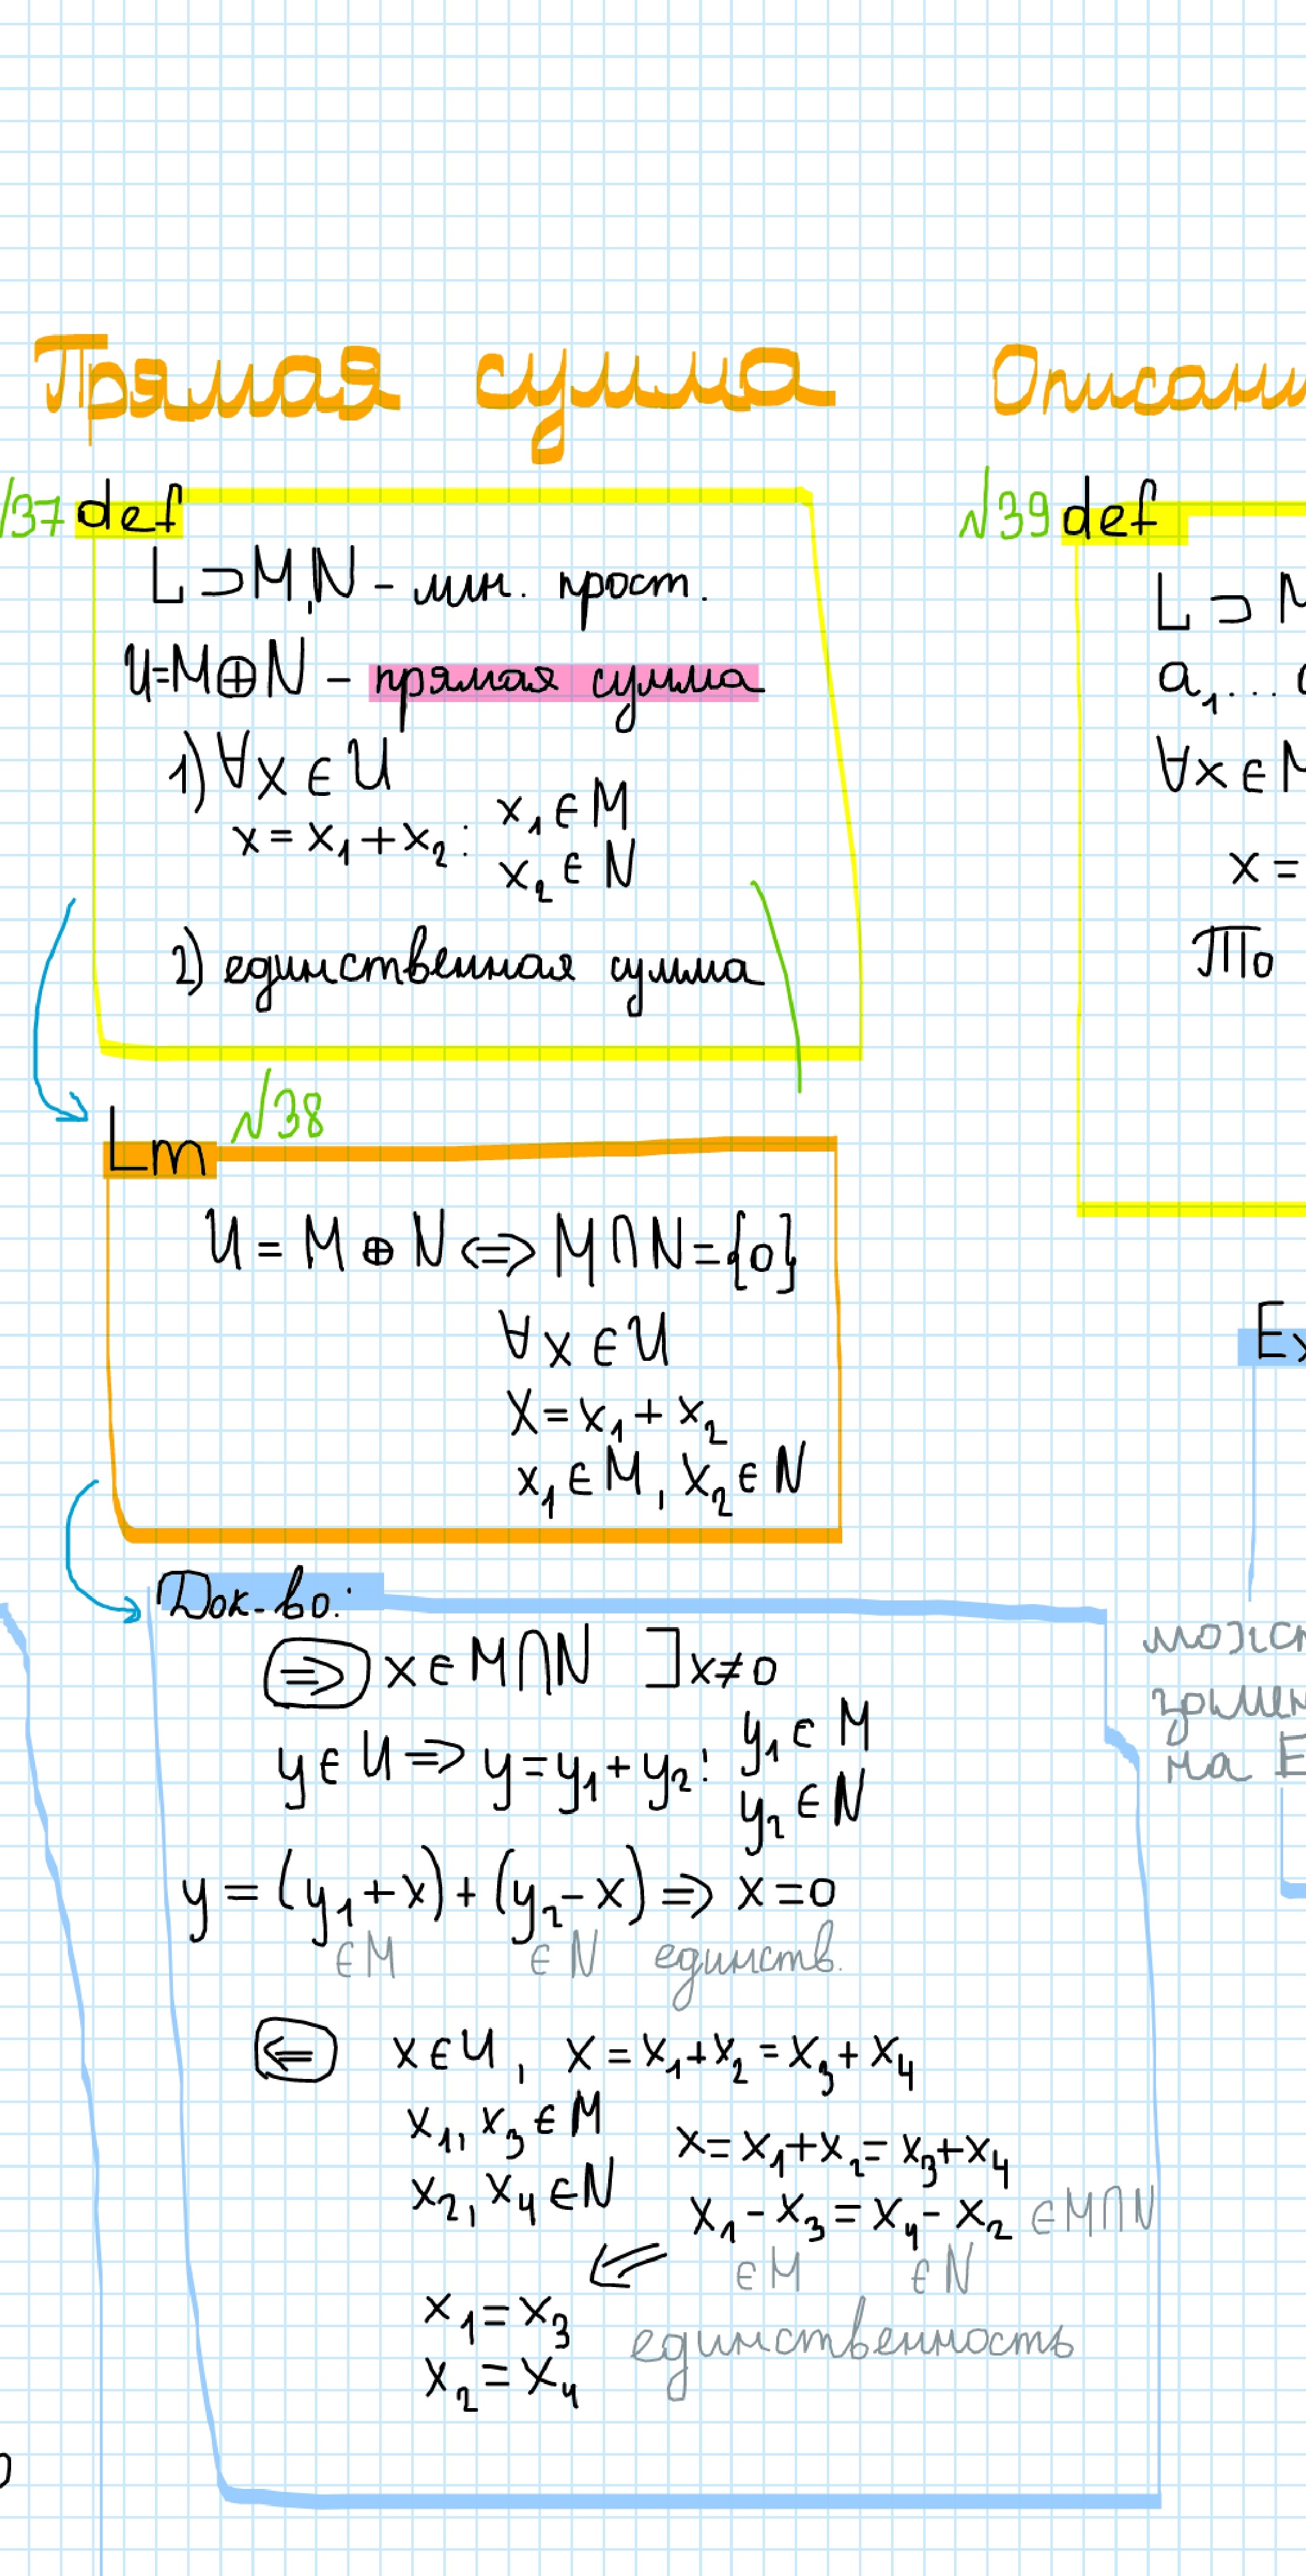 Прямая сумма
√37 def
L ⊃ M, N - лин. прост.
U = M ⊕ N - прямая сумма
1) ∀x ∈ U
x = x₁ + x₂ : x₁ ∈ M
x₂ ∈ N
2) единственная сумма
√38
Lm
U = M ⊕ N ⇔ M ∩ N = {0}
∀x ∈ U
X = x₁ + x₂
x₁ ∈ M, x₂ ∈ N
Док-во:
⇒ x ∈ M ∩ N ] x ≠ 0
y ∈ U ⇒ y = y₁ + y₂ : y₁ ∈ M
y₂ ∈ N
y = (y₁ + x) + (y₂ - x) ⇒ x = 0
∈ M ∈ N единств.
⇐ x ∈ U, x = x₁ + x₂ = x₃ + x₄
x₁, x₃ ∈ M
x₂, x₄ ∈ N
x = x₁ + x₂ = x₃ + x₄
x₁ - x₃ = x₄ - x₂ ∈ M ∩ N
∈ M ∈ N
⇐
x₁ = x₃
x₂ = x₄
единственность
√39 def
L ⊃
a₁...
∀x ∈ M
x =
То
на E